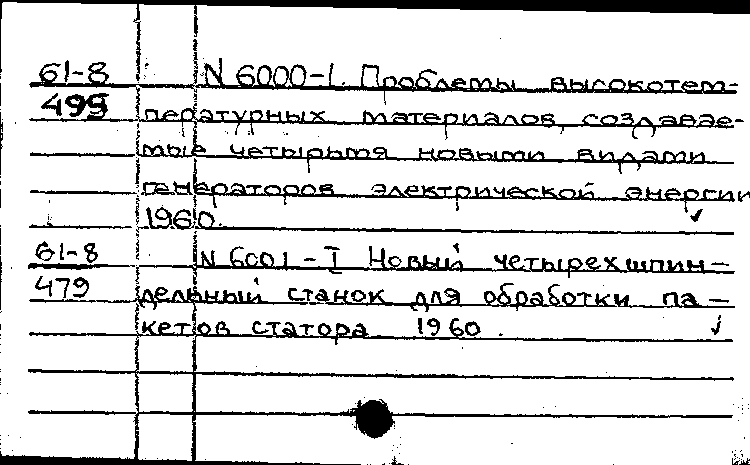 61-8 N 6000-I. Проблемы высокотем-
499 пературных материалов, создавае-
мые четырьмя новыми видами
генераторов электрической энергии
1960. ✓
61-8 N 6001-I Новый четырехшпин-
479 дельный станок для обработки па-
кетов статора 1960. ✓